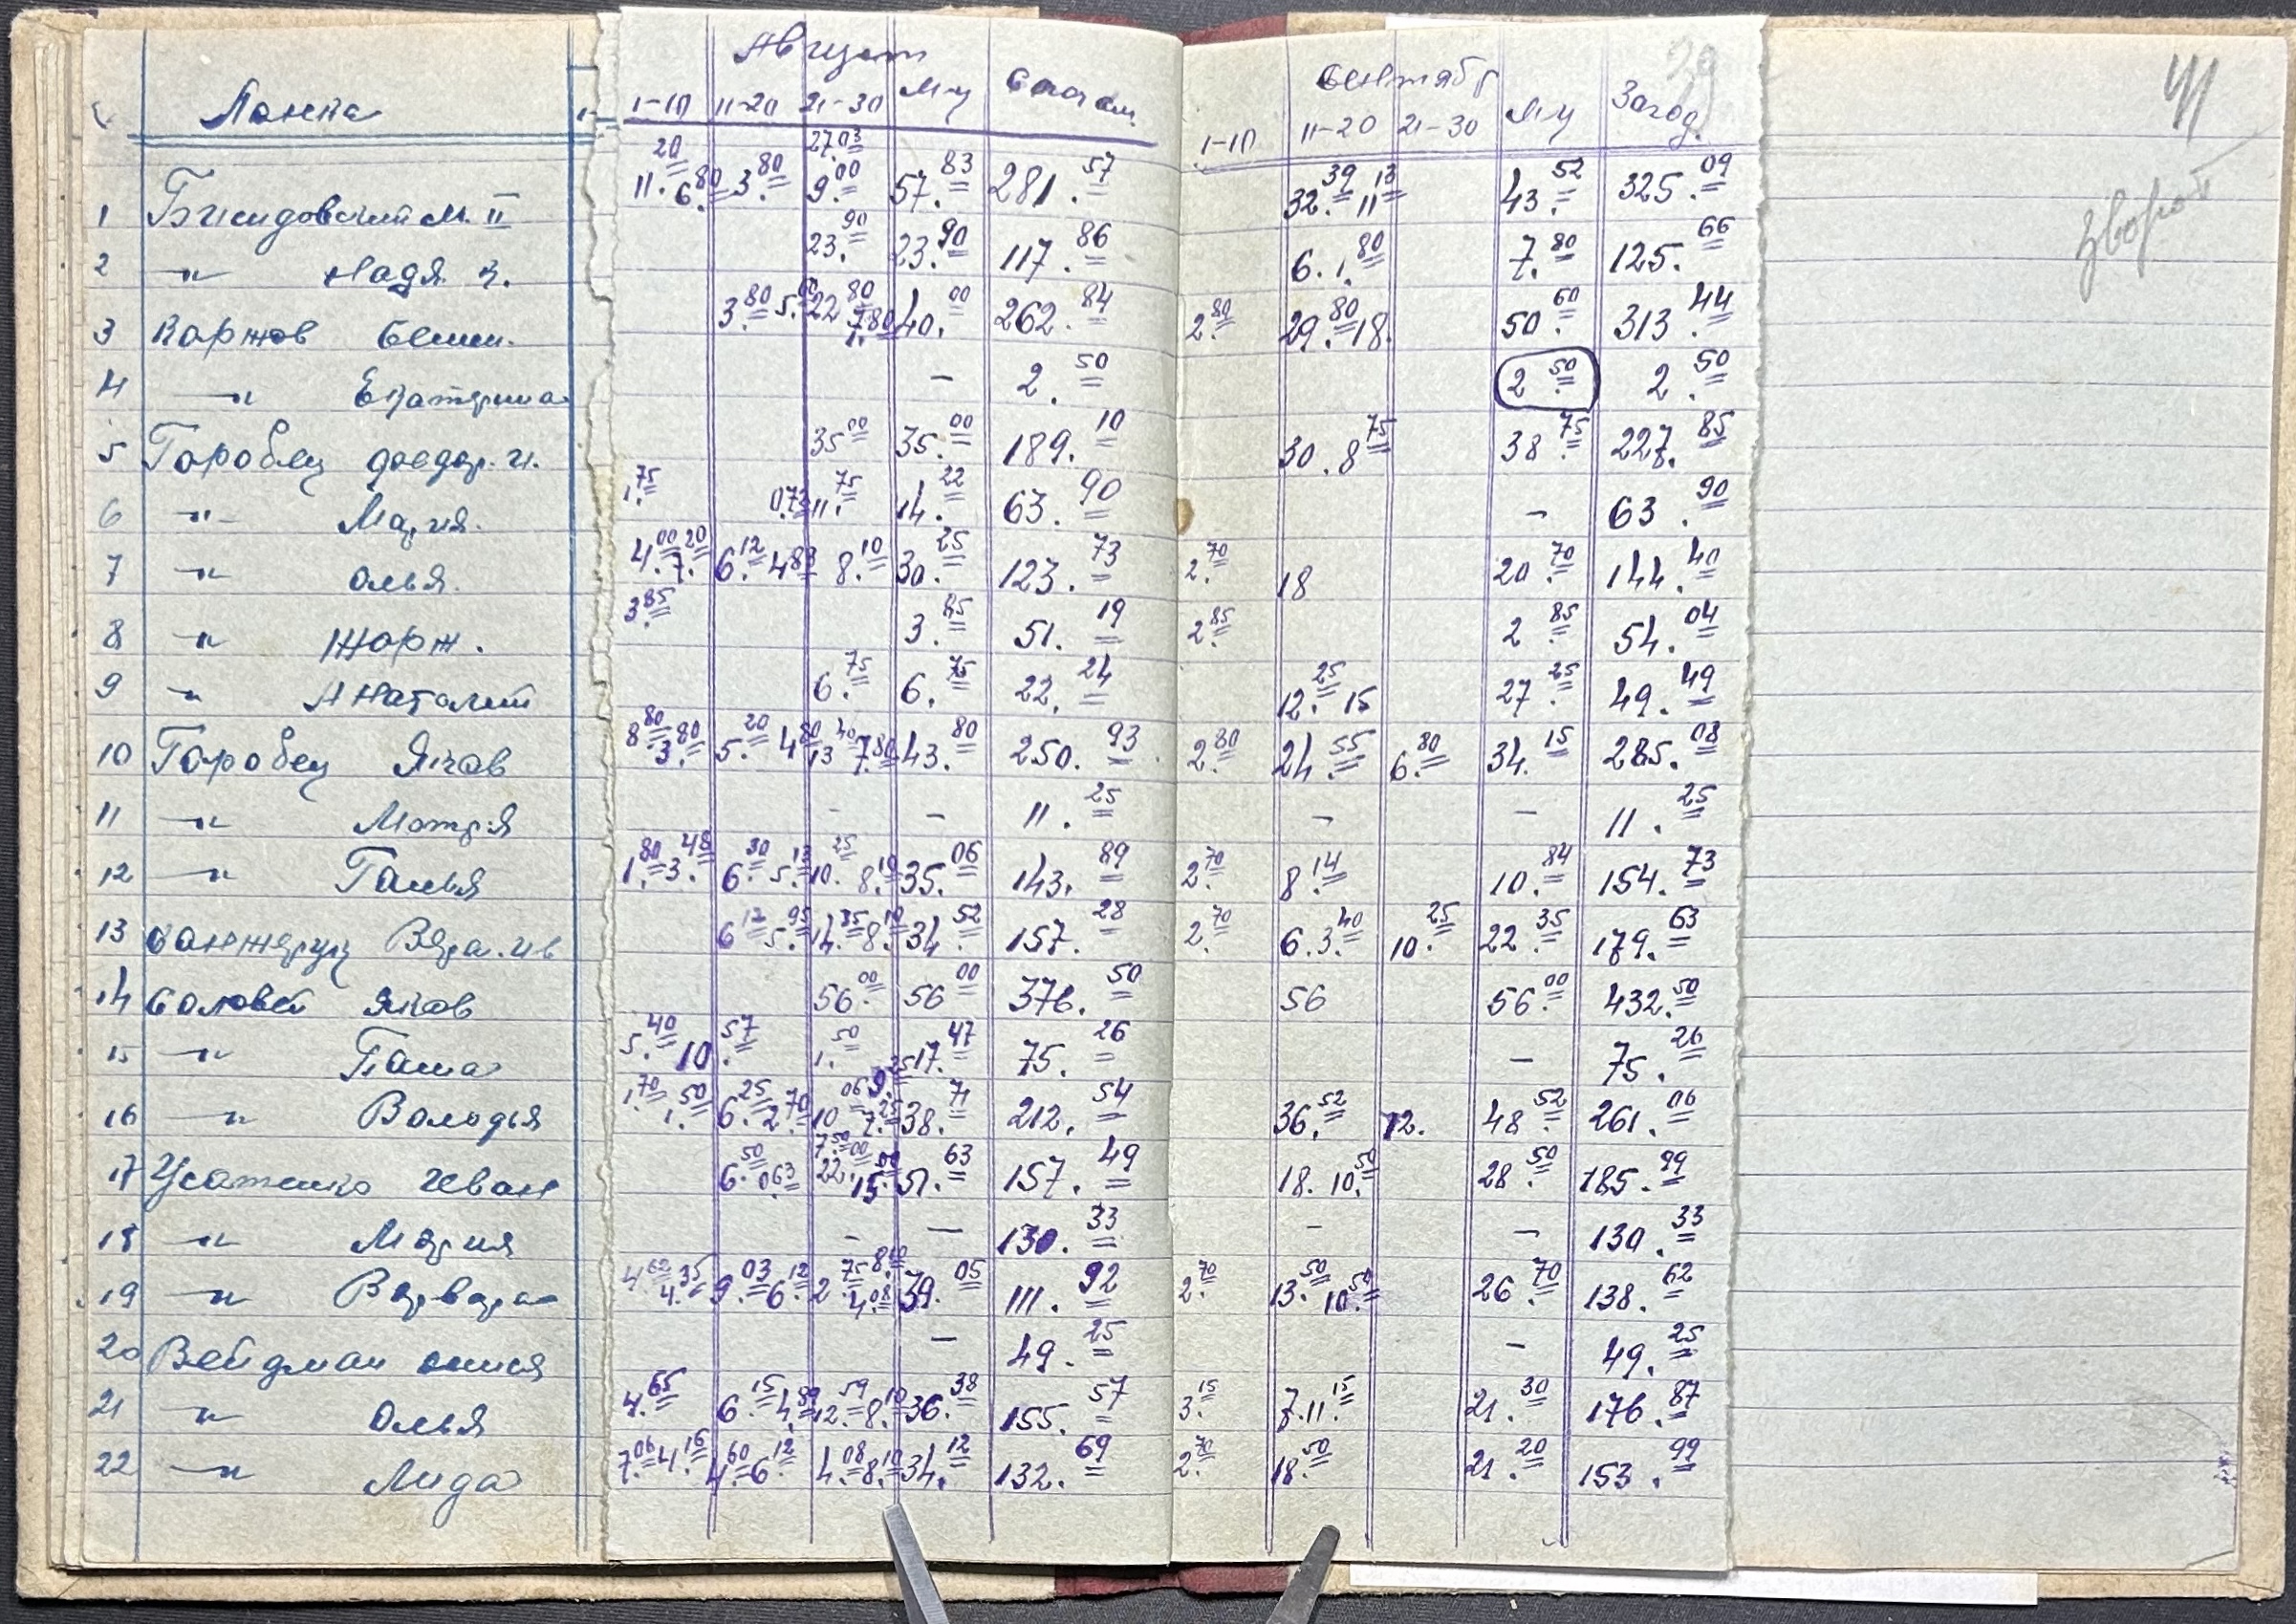 Август
Сентябр
41
зворот
Ланка 1-10 11-20 21-30 М-ц 1-10 11-20 21-30 М-ц Загод.
27.03
1 М. II 11.20 6.80 3.80 9.00 57.83 281.57 32.39 11.13 43.52 325.09
2 —"— Надя З. 23.90 23.90 117.86 6. 1.80 7.80 125.66
3 Коржов Семен. 3.80 5.00 22.80 7.80 40.00 262.84 2.80 29.80 18. 50.60 313.44
4 —"— Екатерина — 2.50 2.50 2.50
5 Горобец Феодор. И. 35.00 35.00 189.10 30. 8.75 38.75 227.85
6 —"— Мария. 1.75 0.72 11.75 14.22 63.90 — 63.90
7 —"— Олья. 4.00 7.20 6.12 4.83 8.10 30.25 123.73 2.70 18 20.70 144.40
8 —"— Жорж. 3.85 3.85 51.19 2.85 2.85 54.04
9 —"— Анатолий 6.75 6.75 22.24 12.25 15 27.25 49.49
10 Горобец Яков 8.80 3.80 5.20 4.80 13.40 7.80 43.80 250.93 2.80 24.55 6.80 34.15 285.08
11 —"— Мотря — — 11.25 — — 11.25
12 —"— Галья 1.80 3.48 6.30 5.13 10.25 8.10 35.06 143.89 2.70 8.14 10.84 154.73
13 Санжаруц Вера. Ив 6.12 5.95 14.35 8.10 34.52 157.28 2.70 6. 3.40 10.25 22.35 179.63
14 Соловей Яков 56.00 56.00 376.50 56 56.00 432.50
15 —"— Паша 5.40 10.57 1.50 17.47 75.26 — 75.26
16 —"— Володья 1.70 1.50 6.25 2.70 10.06 9.25 7.25 38.71 212.54 36.52 12. 48.52 261.06
17 Усатенко Иван 6.50 0.63 7.50 22.00 15.00 51.63 157.49 18. 10.50 28.50 185.99
18 —"— Мария — — 130.33 — — 130.33
19 —"— Варвара 4.62 4.35 9.03 6.12 2.75 8.10 4.08 39.05 111.92 2.70 13.50 10.50 26.70 138.62
20 Вейдман — 49.25 — 49.25
21 —"— Олья 4.65 6.15 4.89 12.59 8.10 36.38 155.57 3.15 7. 11.15 21.30 176.87
22 —"— Лида 7.06 4.16 4.60 6.12 4.08 8.10 34.12 132.69 2.70 18.50 21.20 153.99